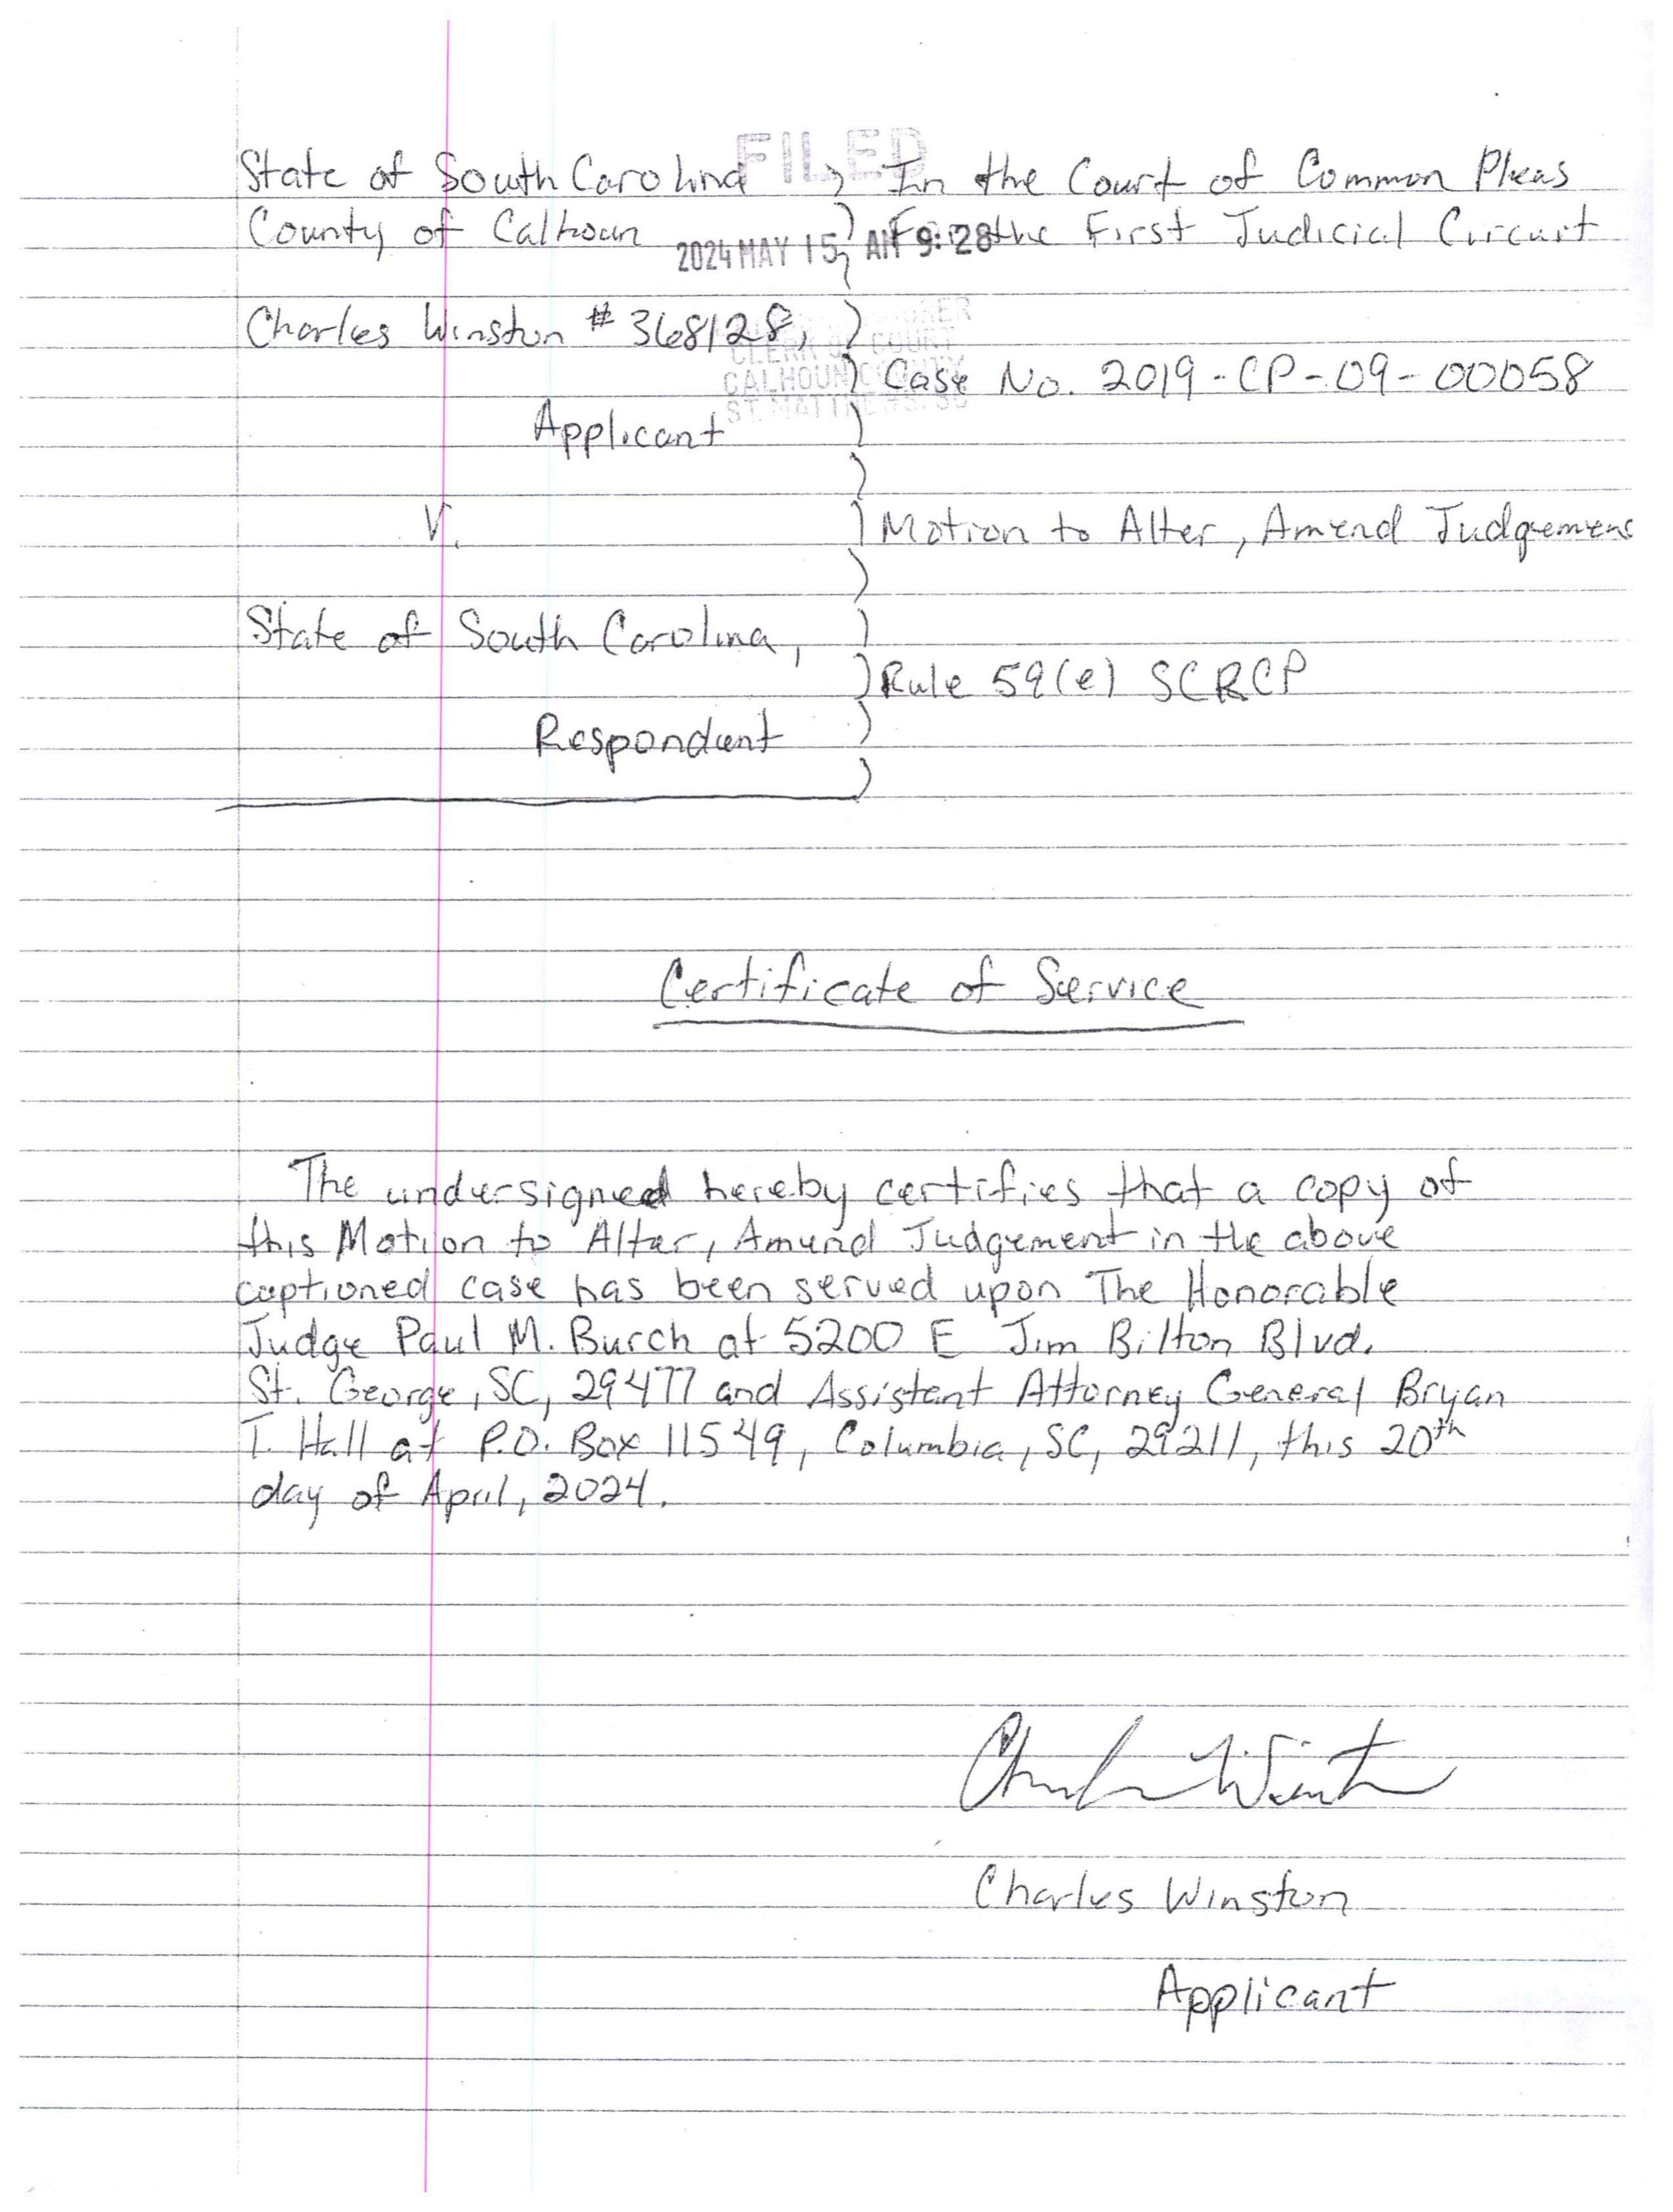 FILED
State of South Carolina ) In the Court of Common Pleas
County of Calhoun ) For the First Judicial Circuit
2024 MAY 15 AM 9:28
)
Charles Winston # 368128, )
CLERK OF COURT
CALHOUN COUNTY
ST. MATTHEWS, SC
) Case No. 2019-CP-09-00058
Applicant )
)
V. ) Motion to Alter, Amend Judgement
)
State of South Carolina, )
) Rule 59(e) SCRCP
Respondent )
)
Certificate of Service
The undersigned hereby certifies that a copy of
this Motion to Alter, Amend Judgement in the above
captioned case has been served upon The Honorable
Judge Paul M. Burch at 5200 E Jim Bilton Blvd.
St. George, SC, 29477 and Assistant Attorney General Bryan
T. Hall at P.O. Box 11549, Columbia, SC, 29211, this 20th
day of April, 2024.
Charles Winston
Charles Winston
Applicant